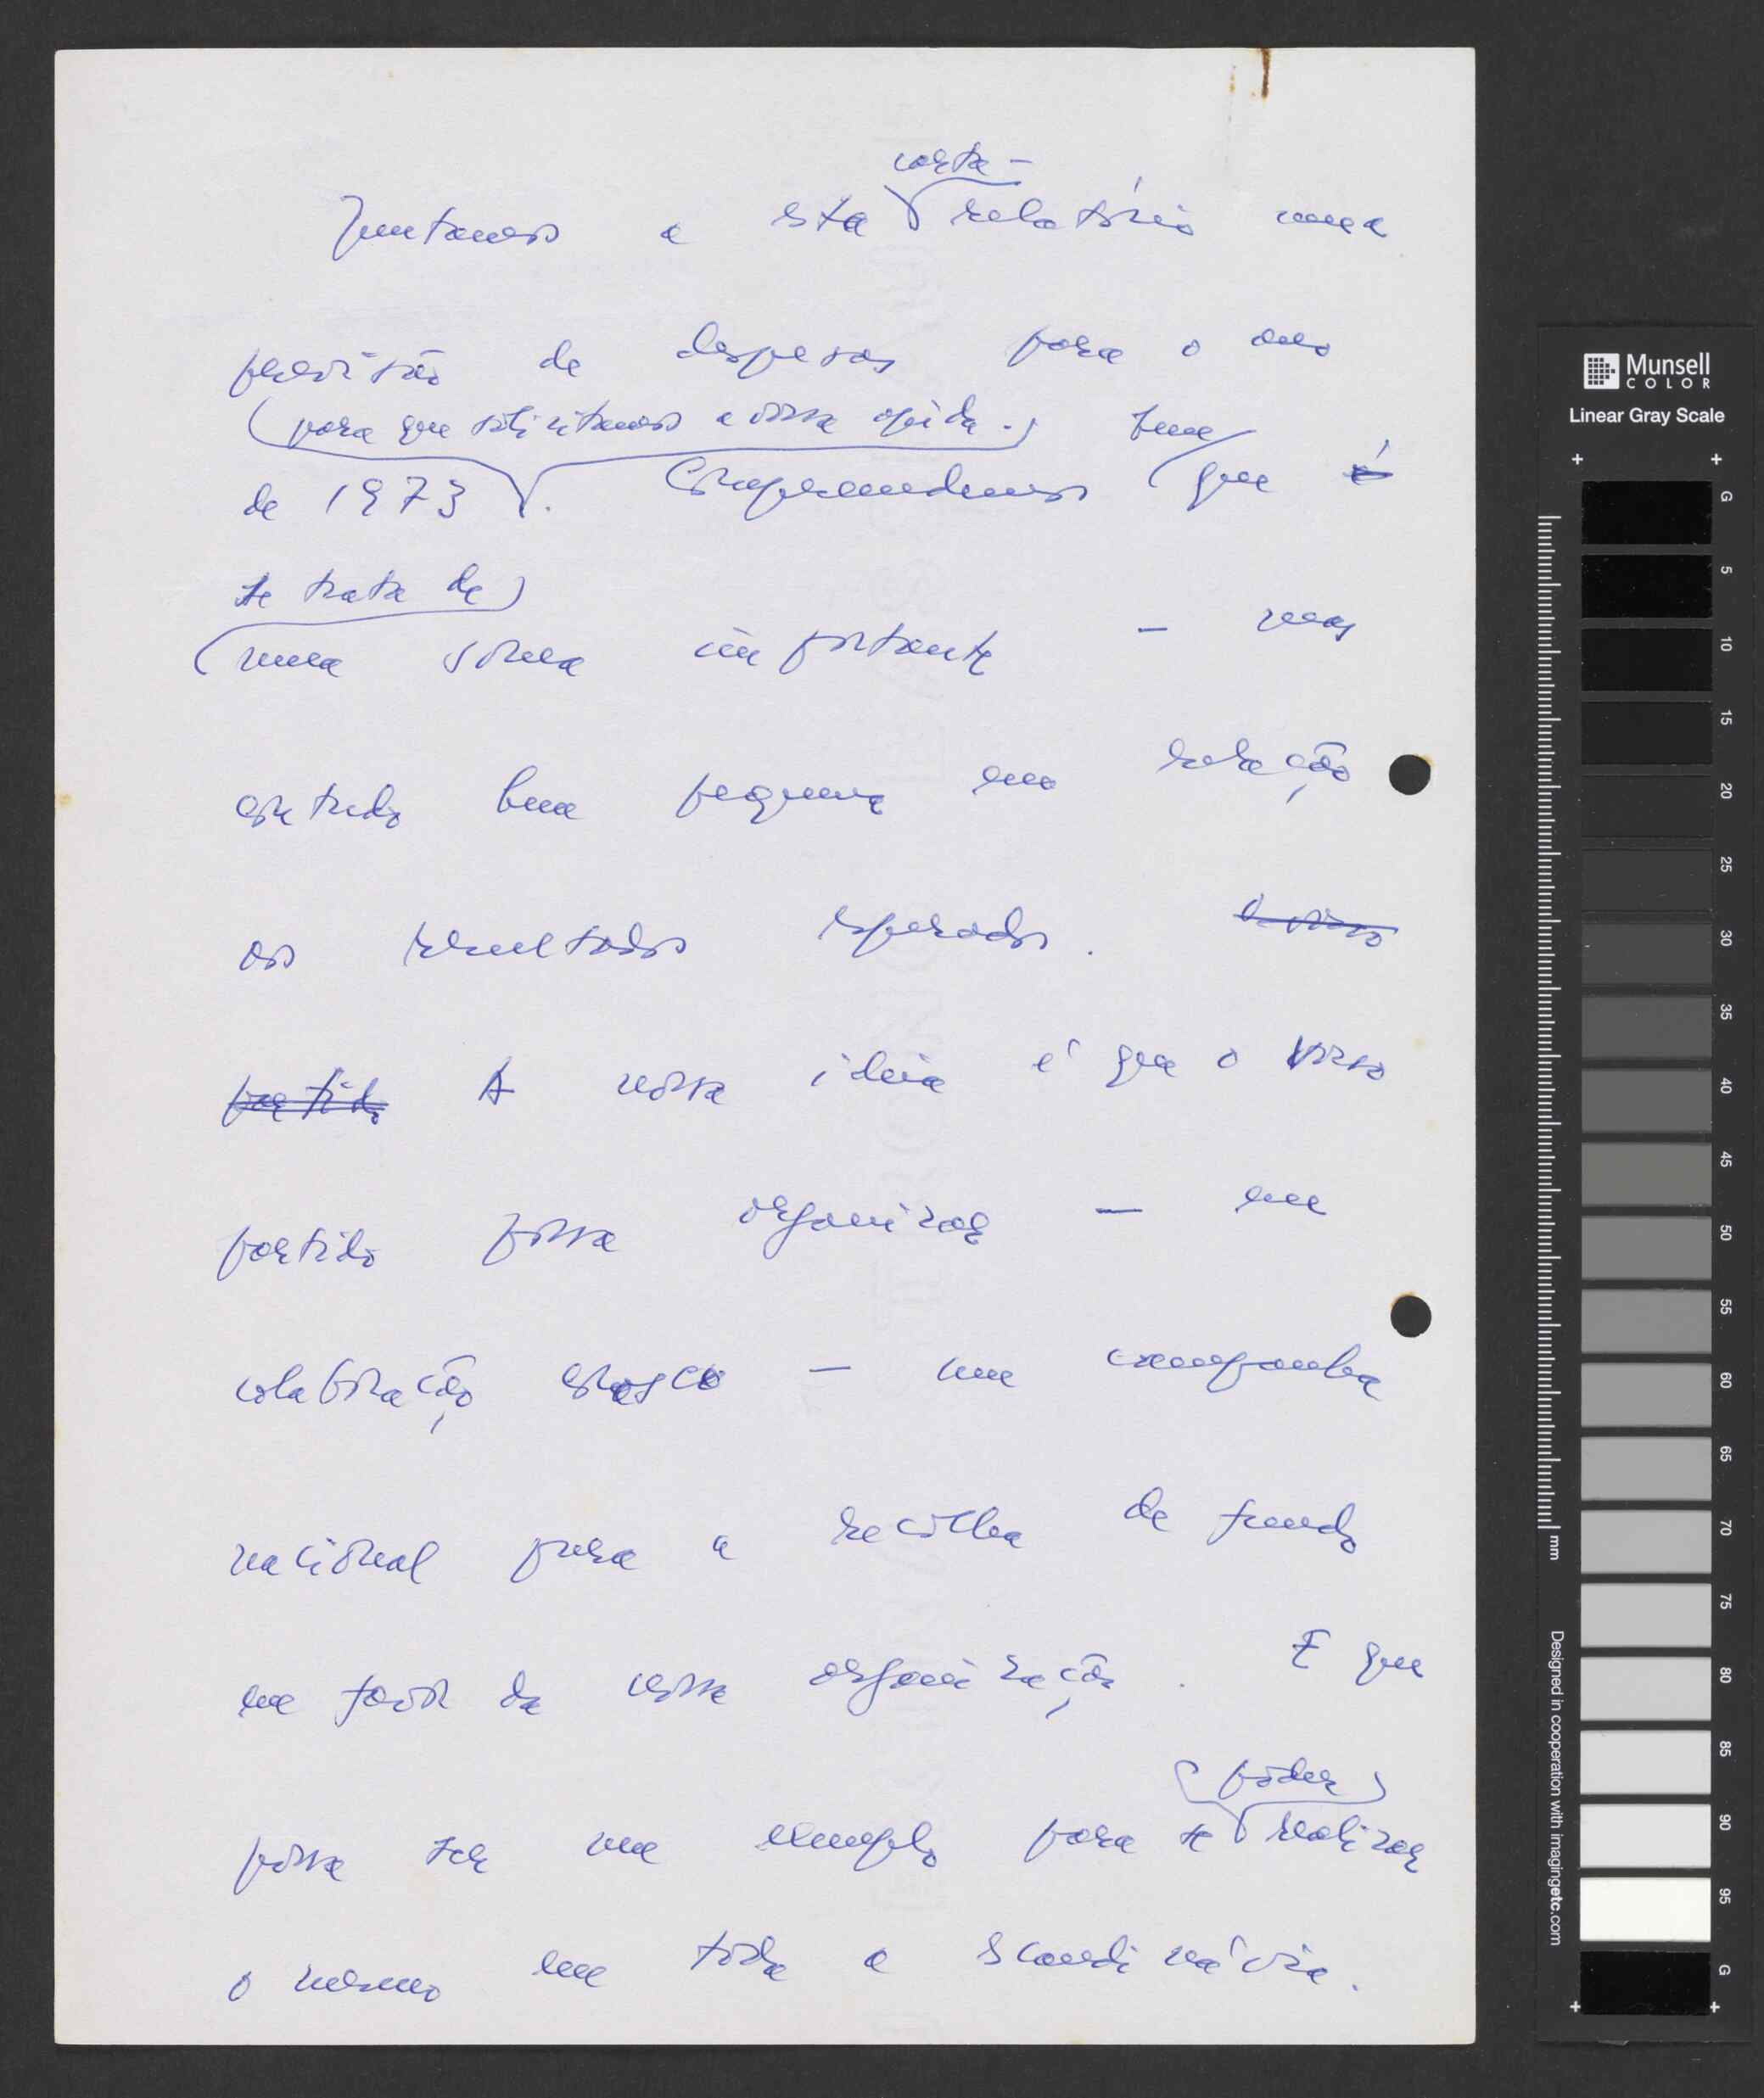 carta-
Juntamos a esta relatório uma
previsão de despesas para o ano
(para que solicitamos a vossa ajuda.) bem
de 1973. Compreendemos que é
se trata de
uma soma importante – mas
contudo bem pequena em relação
aos resultados esperados. o vosso
partido A nossa ideia é que o vosso
partido possa organizar — em
colaboração conosco — uma campanha
nacional para a recolha de fundos
em favor da nossa organização. E que
(poder)
possa ser um exemplo para se realizar
o mesmo em toda a Scandinávia.
Munsell
COLOR
Linear Gray Scale
G
5
10
15
20
25
30
35
40
45
50
55
60
65
70
75
80
85
90
95
G
mm
Designed in cooperation with imagingetc.com